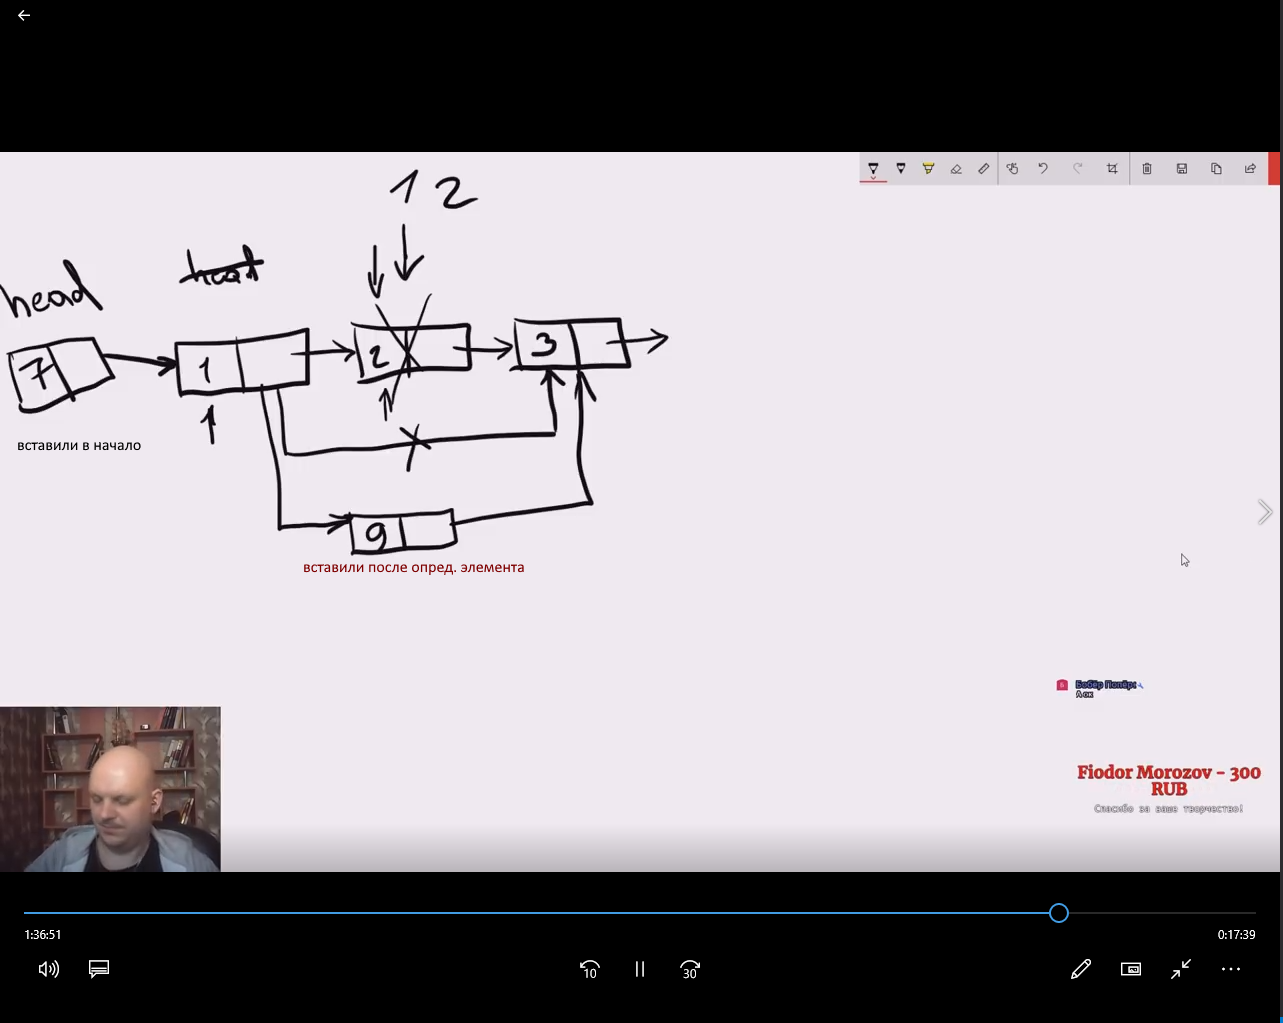 1 2
head
head
7
1
2
3
вставили в начало
9
вставили после опред. элемента
Бобёр Попёр:
Fiodor Morozov - 300
RUB
Спасибо за ваше творчество!
1:36:51
0:17:39
10
30